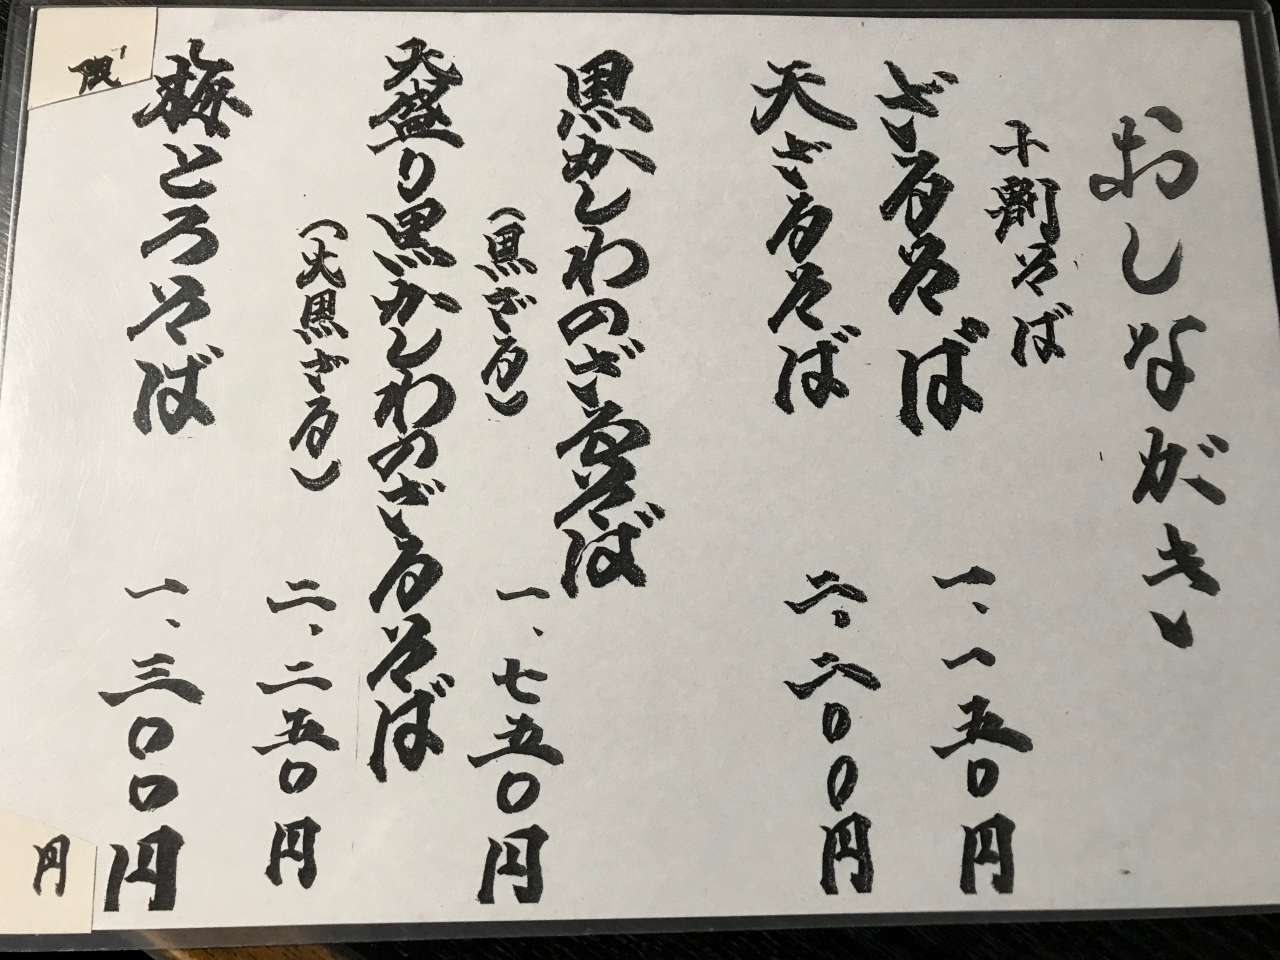 おしながき
十割そば
ざるそば 一、一五〇円
天ざるそば 二、二〇〇円
黒かしわのざるそば
(黒ざる) 一、七五〇円
天盛り黒かしわのざるそば
(天黒ざる) 二、二五〇円
梅とろそば 一、三〇〇円
限
円